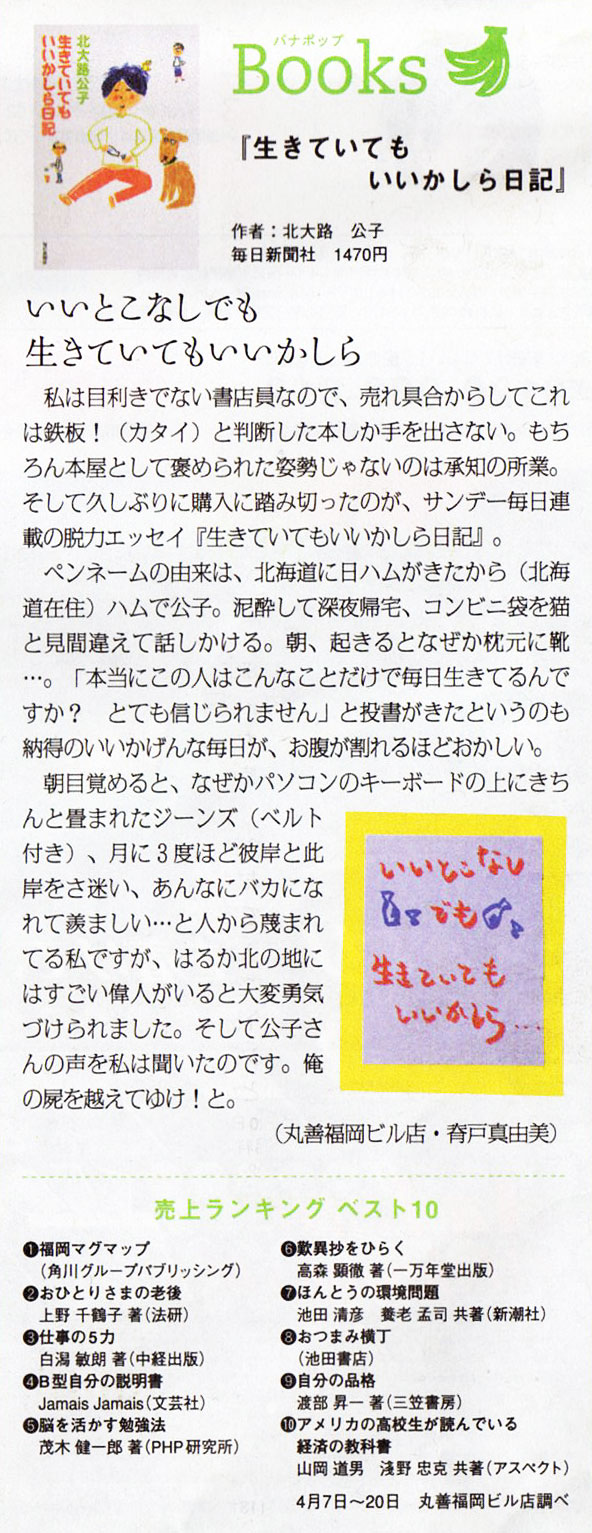 北大路公子
生きていても
いいかしら日記
バナポップ
Books
『生きていても
いいかしら日記』
作者：北大路　公子
毎日新聞社　1470円
いいとこなしでも
生きていてもいいかしら
　私は目利きでない書店員なので、売れ具合からしてこれ
は鉄板！（カタイ）と判断した本しか手を出さない。もち
ろん本屋として褒められた姿勢じゃないのは承知の所業。
そして久しぶりに購入に踏み切ったのが、サンデー毎日連
載の脱力エッセイ『生きていてもいいかしら日記』。
　ペンネームの由来は、北海道に日ハムがきたから（北海
道在住）ハムで公子。泥酔して深夜帰宅、コンビニ袋を猫
と見間違えて話しかける。朝、起きるとなぜか枕元に靴
…。「本当にこの人はこんなことだけで毎日生きてるんで
すか？　とても信じられません」と投書がきたというのも
納得のいいかげんな毎日が、お腹が割れるほどおかしい。
　朝目覚めると、なぜかパソコンのキーボードの上にきち
んと畳まれたジーンズ（ベルト
付き）、月に３度ほど彼岸と此
岸をさ迷い、あんなにバカにな
れて羨ましい…と人から蔑まれ
てる私ですが、はるか北の地に
はすごい偉人がいると大変勇気
づけられました。そして公子さ
んの声を私は聞いたのです。俺
の屍を越えてゆけ！と。
いいとこなし
でも
生きていても
いいかしら…
（丸善福岡ビル店・脊戸真由美）
売上ランキング ベスト10
❶福岡マグマップ
（角川グループパブリッシング）
❷おひとりさまの老後
上野 千鶴子 著（法研）
❸仕事の5力
白潟 敏朗 著（中経出版）
❹B型自分の説明書
Jamais Jamais（文芸社）
❺脳を活かす勉強法
茂木 健一郎 著（PHP研究所）
❻歎異抄をひらく
高森 顕徹 著（一万年堂出版）
❼ほんとうの環境問題
池田 清彦　養老 孟司 共著（新潮社）
❽おつまみ横丁
（池田書店）
❾自分の品格
渡部 昇一 著（三笠書房）
❿アメリカの高校生が読んでいる
経済の教科書
山岡 道男　淺野 忠克 共著（アスペクト）
4月7日〜20日　丸善福岡ビル店調べ